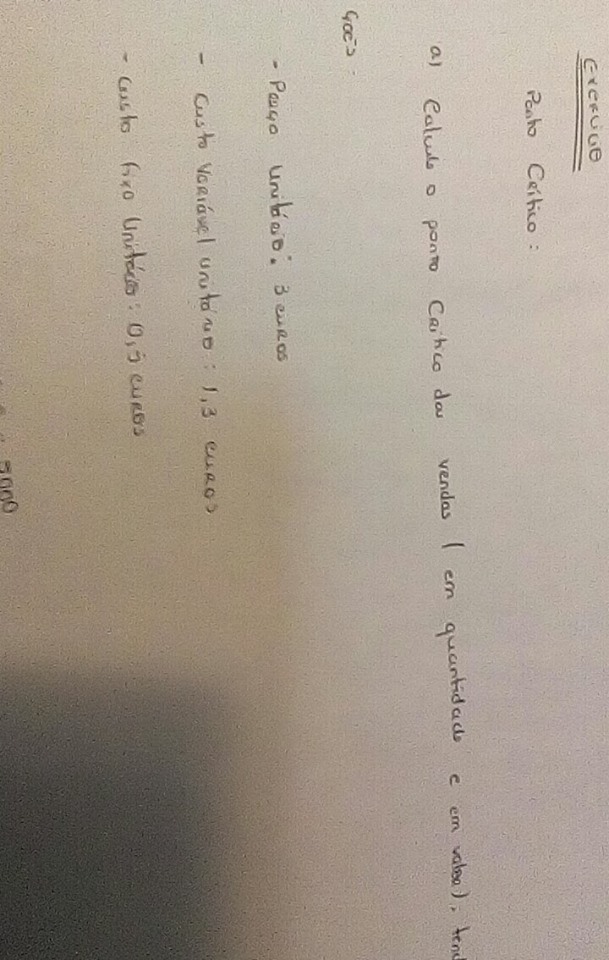 Exercício
Ponto Crítico:
a) Calcule o ponto Crítico das vendas ( em quantidade e em valor), tend
ções:
- Preço unitário: 3 euros
- Custo Variável unitário: 1,3 euros
- Custo fixo Unitário: 0,5 euros
5000